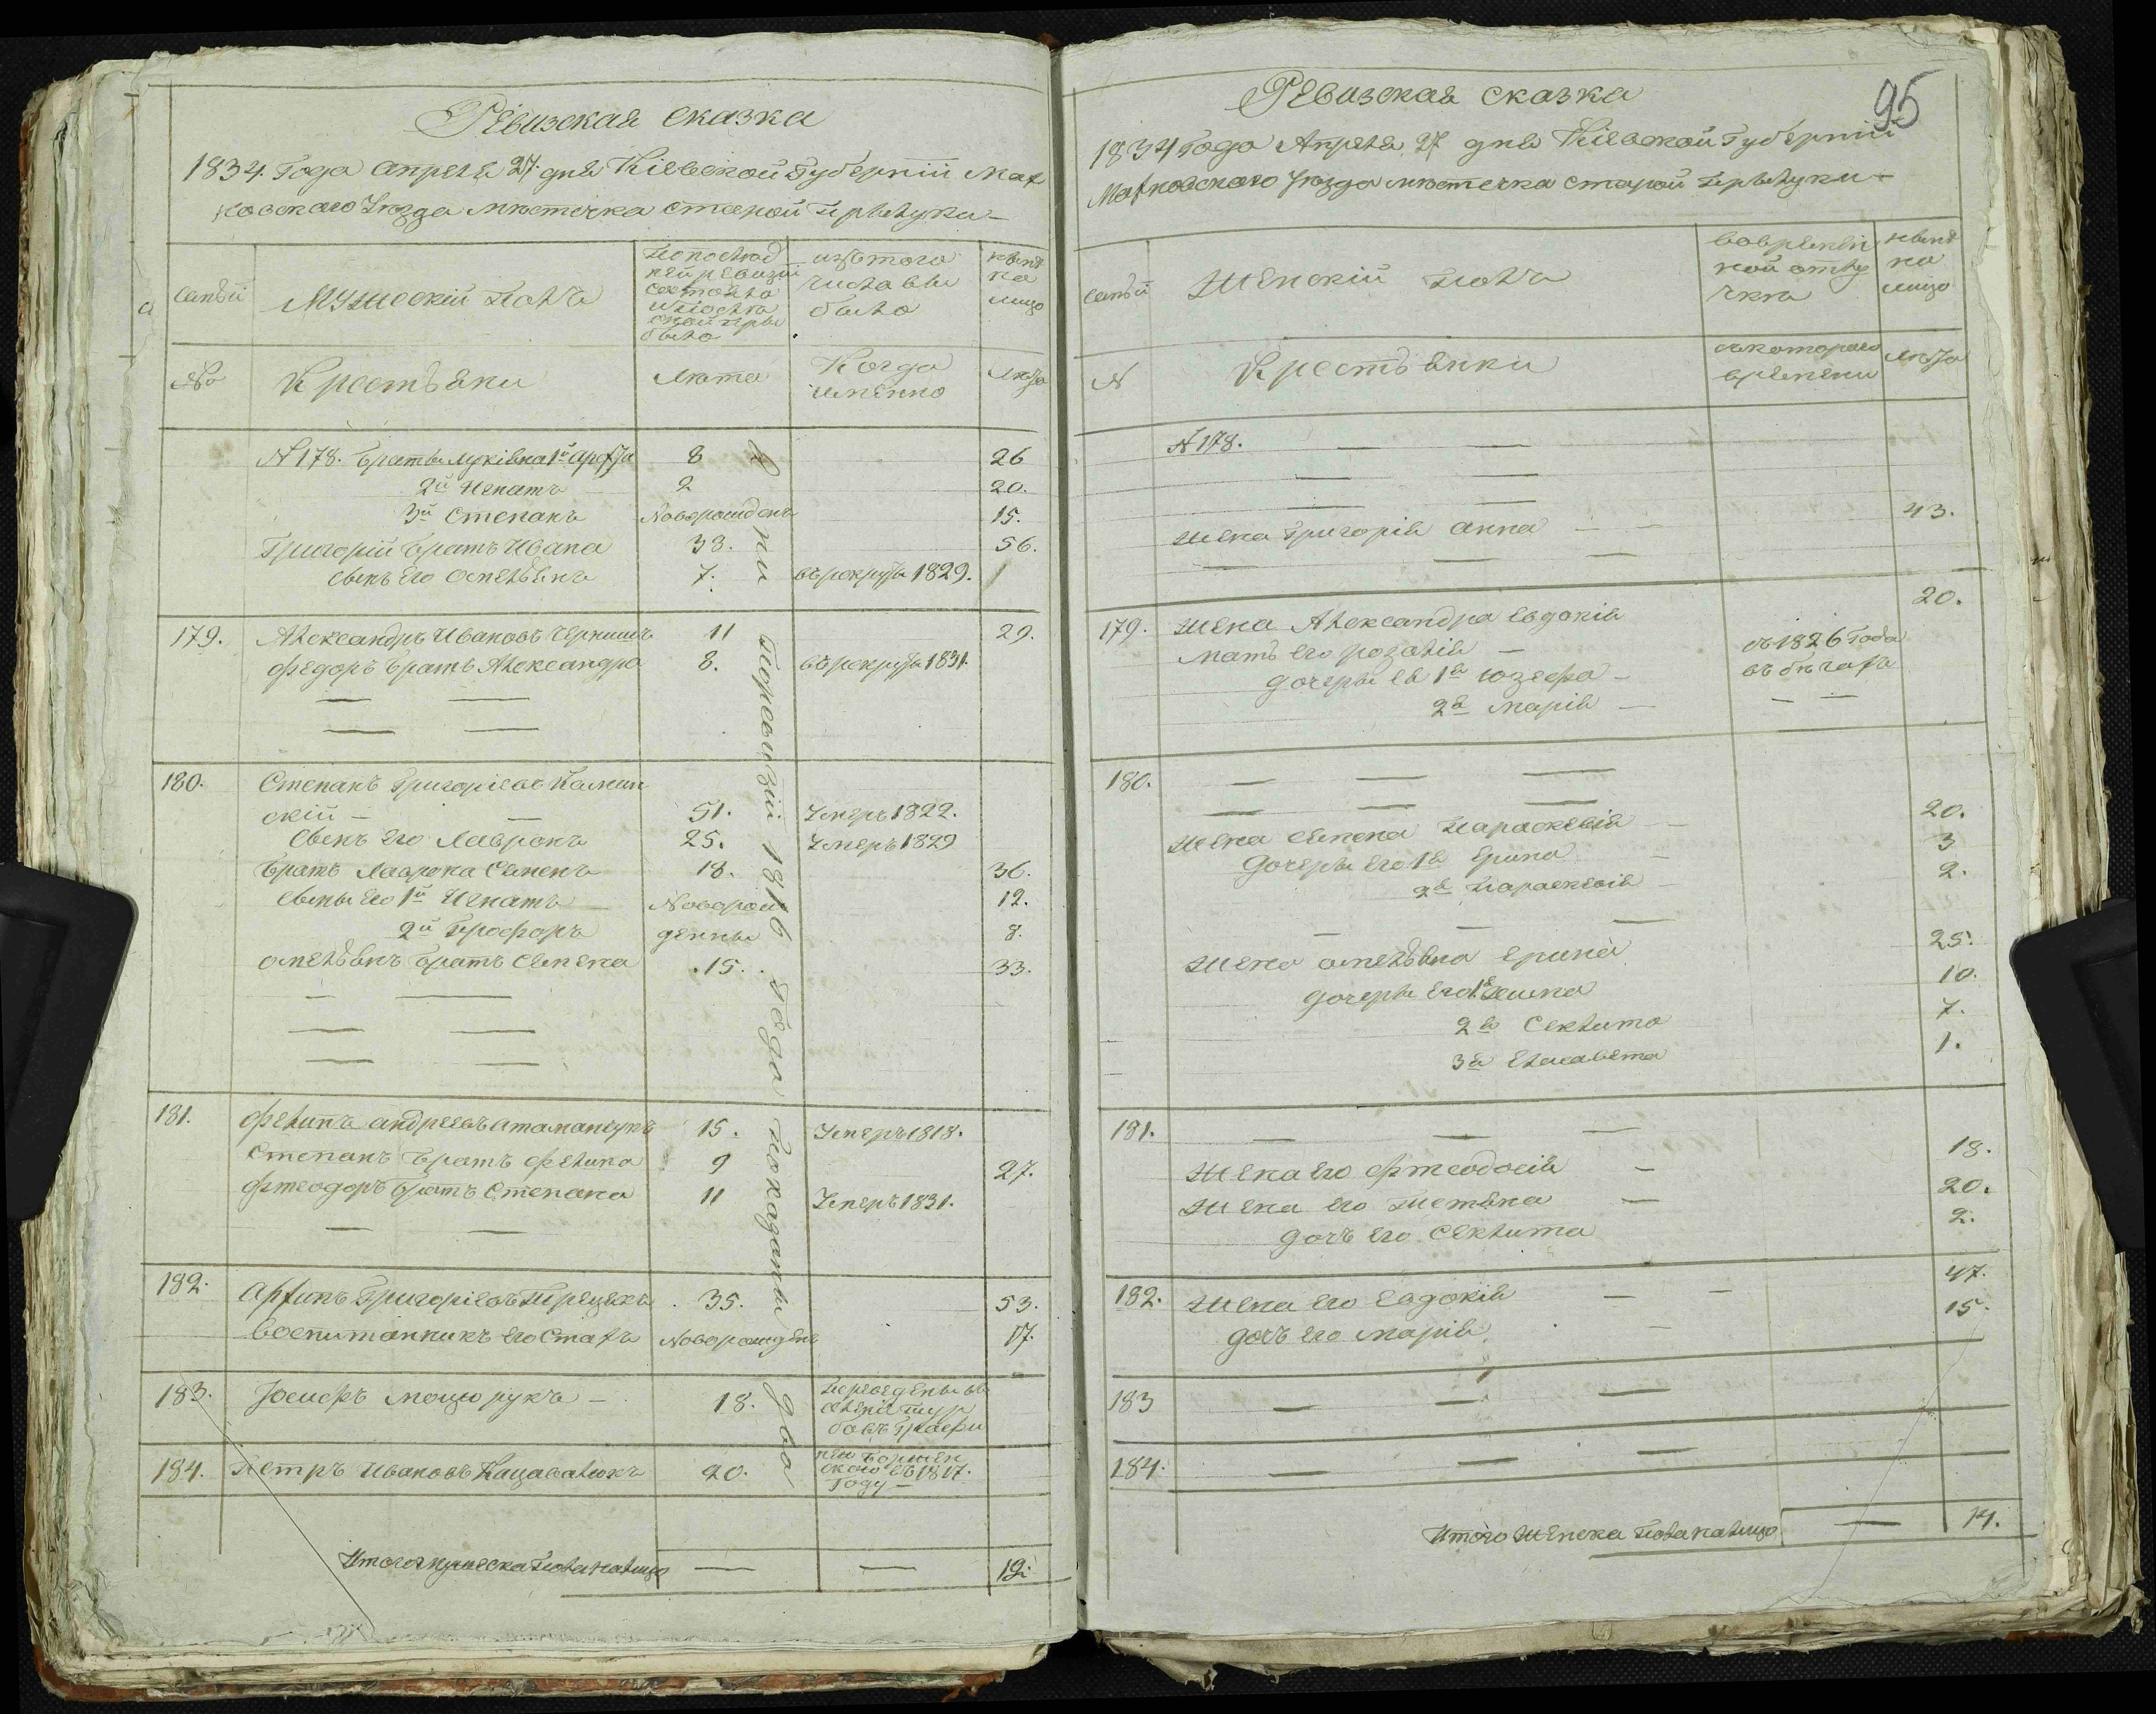 Ревизская сказка
1834. Года апреля 27. дня Кіевской Губерніи Мах
новского Уезда местечка Старой Прылуки
семьи
Мужескій полъ
По послед
ней ревизіи
состояло
и после
оной при
было
изъ того
числа вы
было
ныне
на
лицо
№
Крестьяни
Лета
Когда
именно
Лета
N 178. Браты Лукіяна 1й
8
26
2й Игнатъ
2
20.
3й Степанъ
Новорожденъ
15.
Григорій братъ Ивана
38.
56.
сынъ его Омельянъ
7.
въ рекруты 1829.
179.
Александръ Ивановъ Чернишъ
11
29.
Федоръ братъ Александра
8.
въ рекруты 1831.
180.
Степанъ Григоріевъ Камин
скій
51.
Умеръ 1822.
Сынъ его Лавронъ
25.
Умеръ 1829
Братъ Лаврона Семенъ
18.
36.
Сыны его 1й Игнатъ
Новорож
12.
2й Профоръ
денны
8.
Омельянъ братъ Семена
15.
33.
181.
Филипъ Андреевъ Атаманчукъ
15.
Умеръ 1818.
Степанъ братъ Филипа
9
27.
Фтеодоръ братъ Степана
11
Умеръ 1831.
182.
Архипъ Григоріевъ
35.
53.
Воспитанникъ его Стахъ
Новорожденъ
17.
183.
Іосифъ Мощорукъ
18.
Переведены въ
184.
Петръ Ивановъ Кацавалюкъ
20.
1817.
Году
По ревизіи 1816 Года показаны
Итого мужеска пола налицо
19.
95
Ревизская сказка
1834 Года Апреля 27 дня Кіевской Губерніи
Махновского Уезда местечка Старой Прылуки
семьи
Женскій полъ
во времен
ной отлу
чке
ныне
на
лицо
N
Крестьянки
съ которого
времени
Лета
N 178.
Жена Григорія Анна
43.
179.
Жена Александра Евдокія
20.
Мать его Розалія
съ 1826 Года
дочеры ея 1я Юзефа
въ бегахъ
2я Марія
180.
Жена Семена Параскевія
20.
дочеры его 1я Ерина
3
2я Параскевія
2.
Жена Омельяна Ерина
25.
дочеры его
10.
2я Секлита
7.
3я Елисавета
1.
181.
Жена его Фтеодосія
18.
Жена его Тетяна
20.
дочь его Секлита
2.
182.
Жена его Евдокія
47.
дочь его Марія
15.
183
184.
Итого женска пола налицо
14.